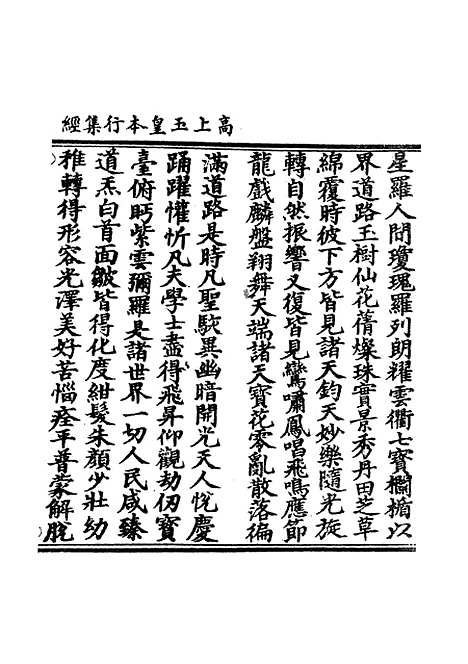 高上玉皇本行集經
星羅人間瓊瑰羅列朗耀雲衢七寶欄楯以
界道路玉樹仙花蒨燦珠實景秀丹田芝草
綿覆時彼下方皆見諸天鈞天妙樂隨光旋
轉自然振響又復皆見鸞嘯鳳唱飛鳴應節
龍戲麟盤翔舞天端諸天寶花零亂散落徧
滿道路是時凡聖駭異幽暗開光天人悅慶
踊躍懽忻凡夫學士盡得飛昇仰觀劫仞寶
臺俯眄紫雲彌羅是諸世界一切人民咸臻
道炁白首面皺皆得化度紺髮朱顏少壯幼
稚轉得形容光澤美好苦惱痊平普蒙解脫